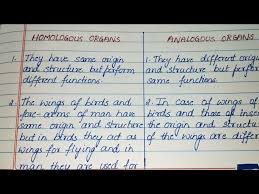 HOMOLOGOUS ORGANS
1. They have same origin
and structure but perform
different functions.
2. The wings of birds and
fore-arms of man have
same origin and structure
but in birds they act as
wings for flying and in
man they are used for
ANALOGOUS ORGANS
1. They have different origin
and structure but perfor
same functions.
2. In case of wings of
birds and those of inse
the origin and structu
of the wings are differ